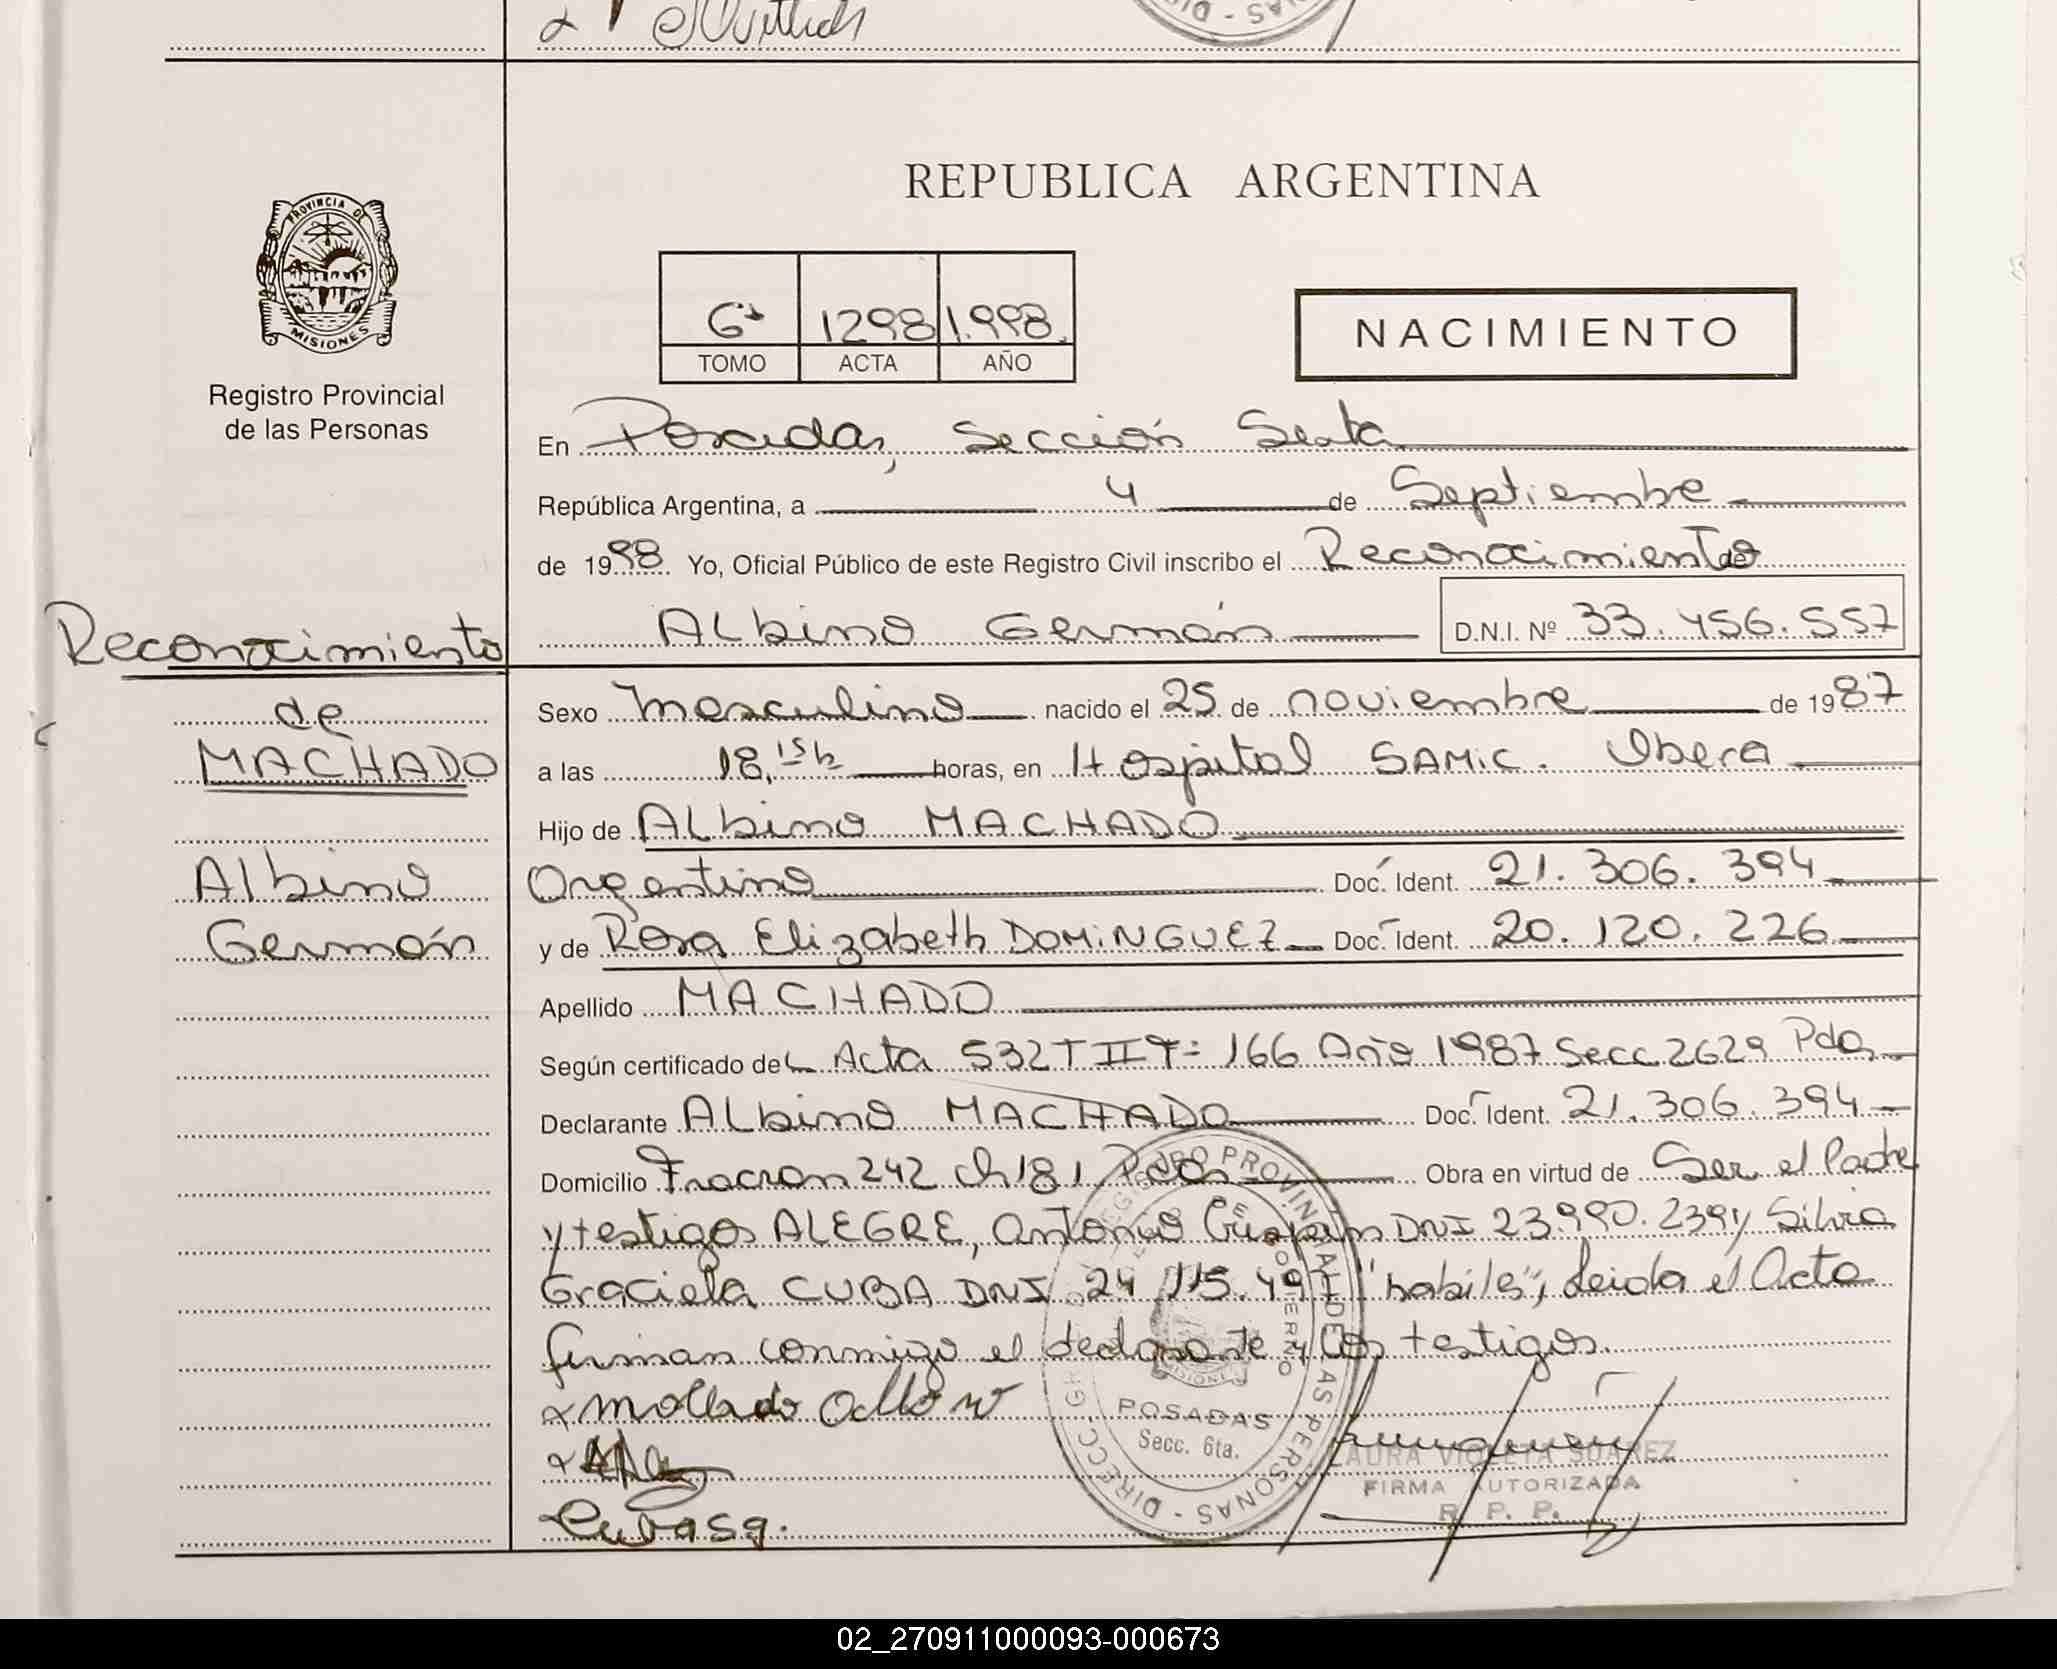 REPUBLICA ARGENTINA
PROVINCIA DE
MISIONES
Registro Provincial
de las Personas
6º 1298 1.998.
TOMO ACTA AÑO
NACIMIENTO
En Posadas, Sección Sexta
República Argentina, a 4 de Septiembre
de 1998 Yo, Oficial Público de este Registro Civil inscribo el Reconocimiento de
Albino Germán D.N.I. Nº 33.456.557
Reconocimiento
de
MACHADO
Albino
Germán
Sexo Masculino nacido el 25 de noviembre de 1987
a las 18,15h horas, en Hospital SAMIC. Obera
Hijo de Albino MACHADO
Argentino Doc. Ident. 21.306.394
y de Rosa Elizabeth DOMINGUEZ Doc. Ident. 20.120.226
Apellido MACHADO
Según certificado de Acta 532 T II Fº 166 Año 1987 Secc 2629 Pdas
Declarante Albino MACHADO Doc. Ident. 21.306.394
Domicilio Fracran 242 ch 181 Pdas Obra en virtud de Ser el Padre
y testigos ALEGRE, Antonio DNI 23.990.239 y Silvia
Graciela CUBA DNI 24.115.497 "habiles", leida el Acta
firman conmigo el declarante y los testigos.
POSADAS
Secc. 6ta.
LAURA VIOLETA SUAREZ
FIRMA AUTORIZADA
R. P. P.
02_270911000093-000673